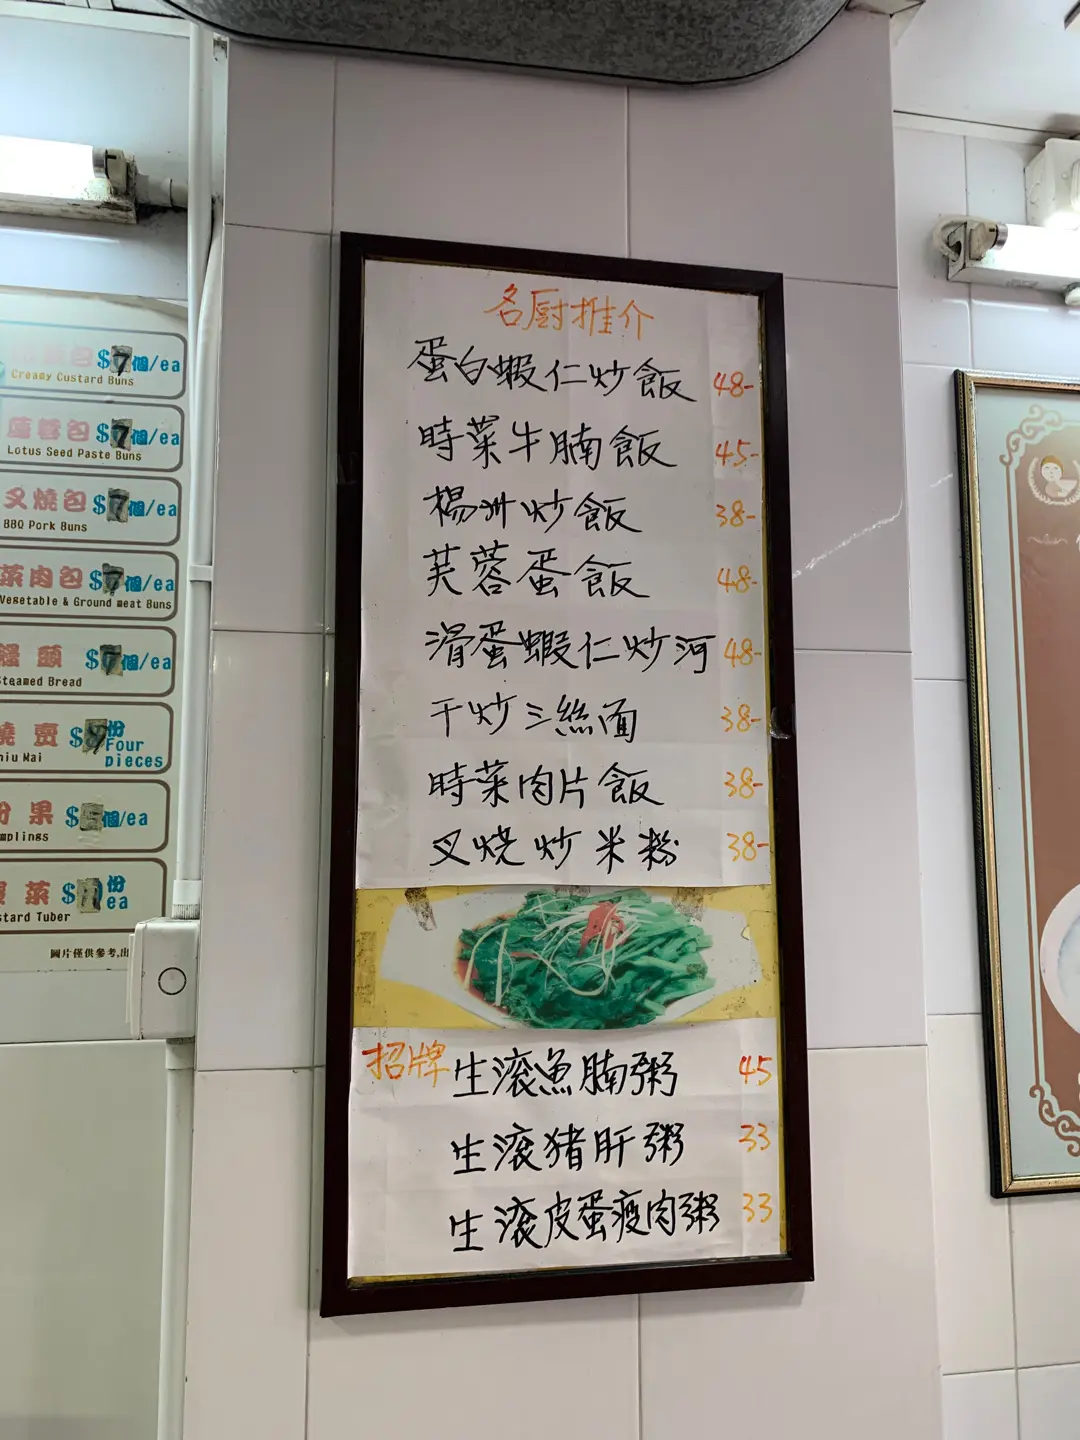 名厨推介
蛋白蝦仁炒飯 48-
時菜牛腩飯 45-
楊州炒飯 38-
芙蓉蛋飯 48-
滑蛋蝦仁炒河 48-
干炒三絲面 38-
時菜肉片飯 38-
叉燒炒米粉 38-
招牌 生滾魚腩粥 45
生滾猪肝粥 33
生滾皮蛋瘦肉粥 33
包 $7個/ea
Creamy Custard Buns
蓮蓉包 $7個/ea
Lotus Seed Paste Buns
叉燒包 $7個/ea
BBQ Pork Buns
菜肉包 $7個/ea
Vegetable & Ground meat Buns
饅頭 $7個/ea
Steamed Bread
燒賣 $9份
Four
pieces
粉果 $個/ea
菜 $11份
ea
Tuber
圖片僅供參考,